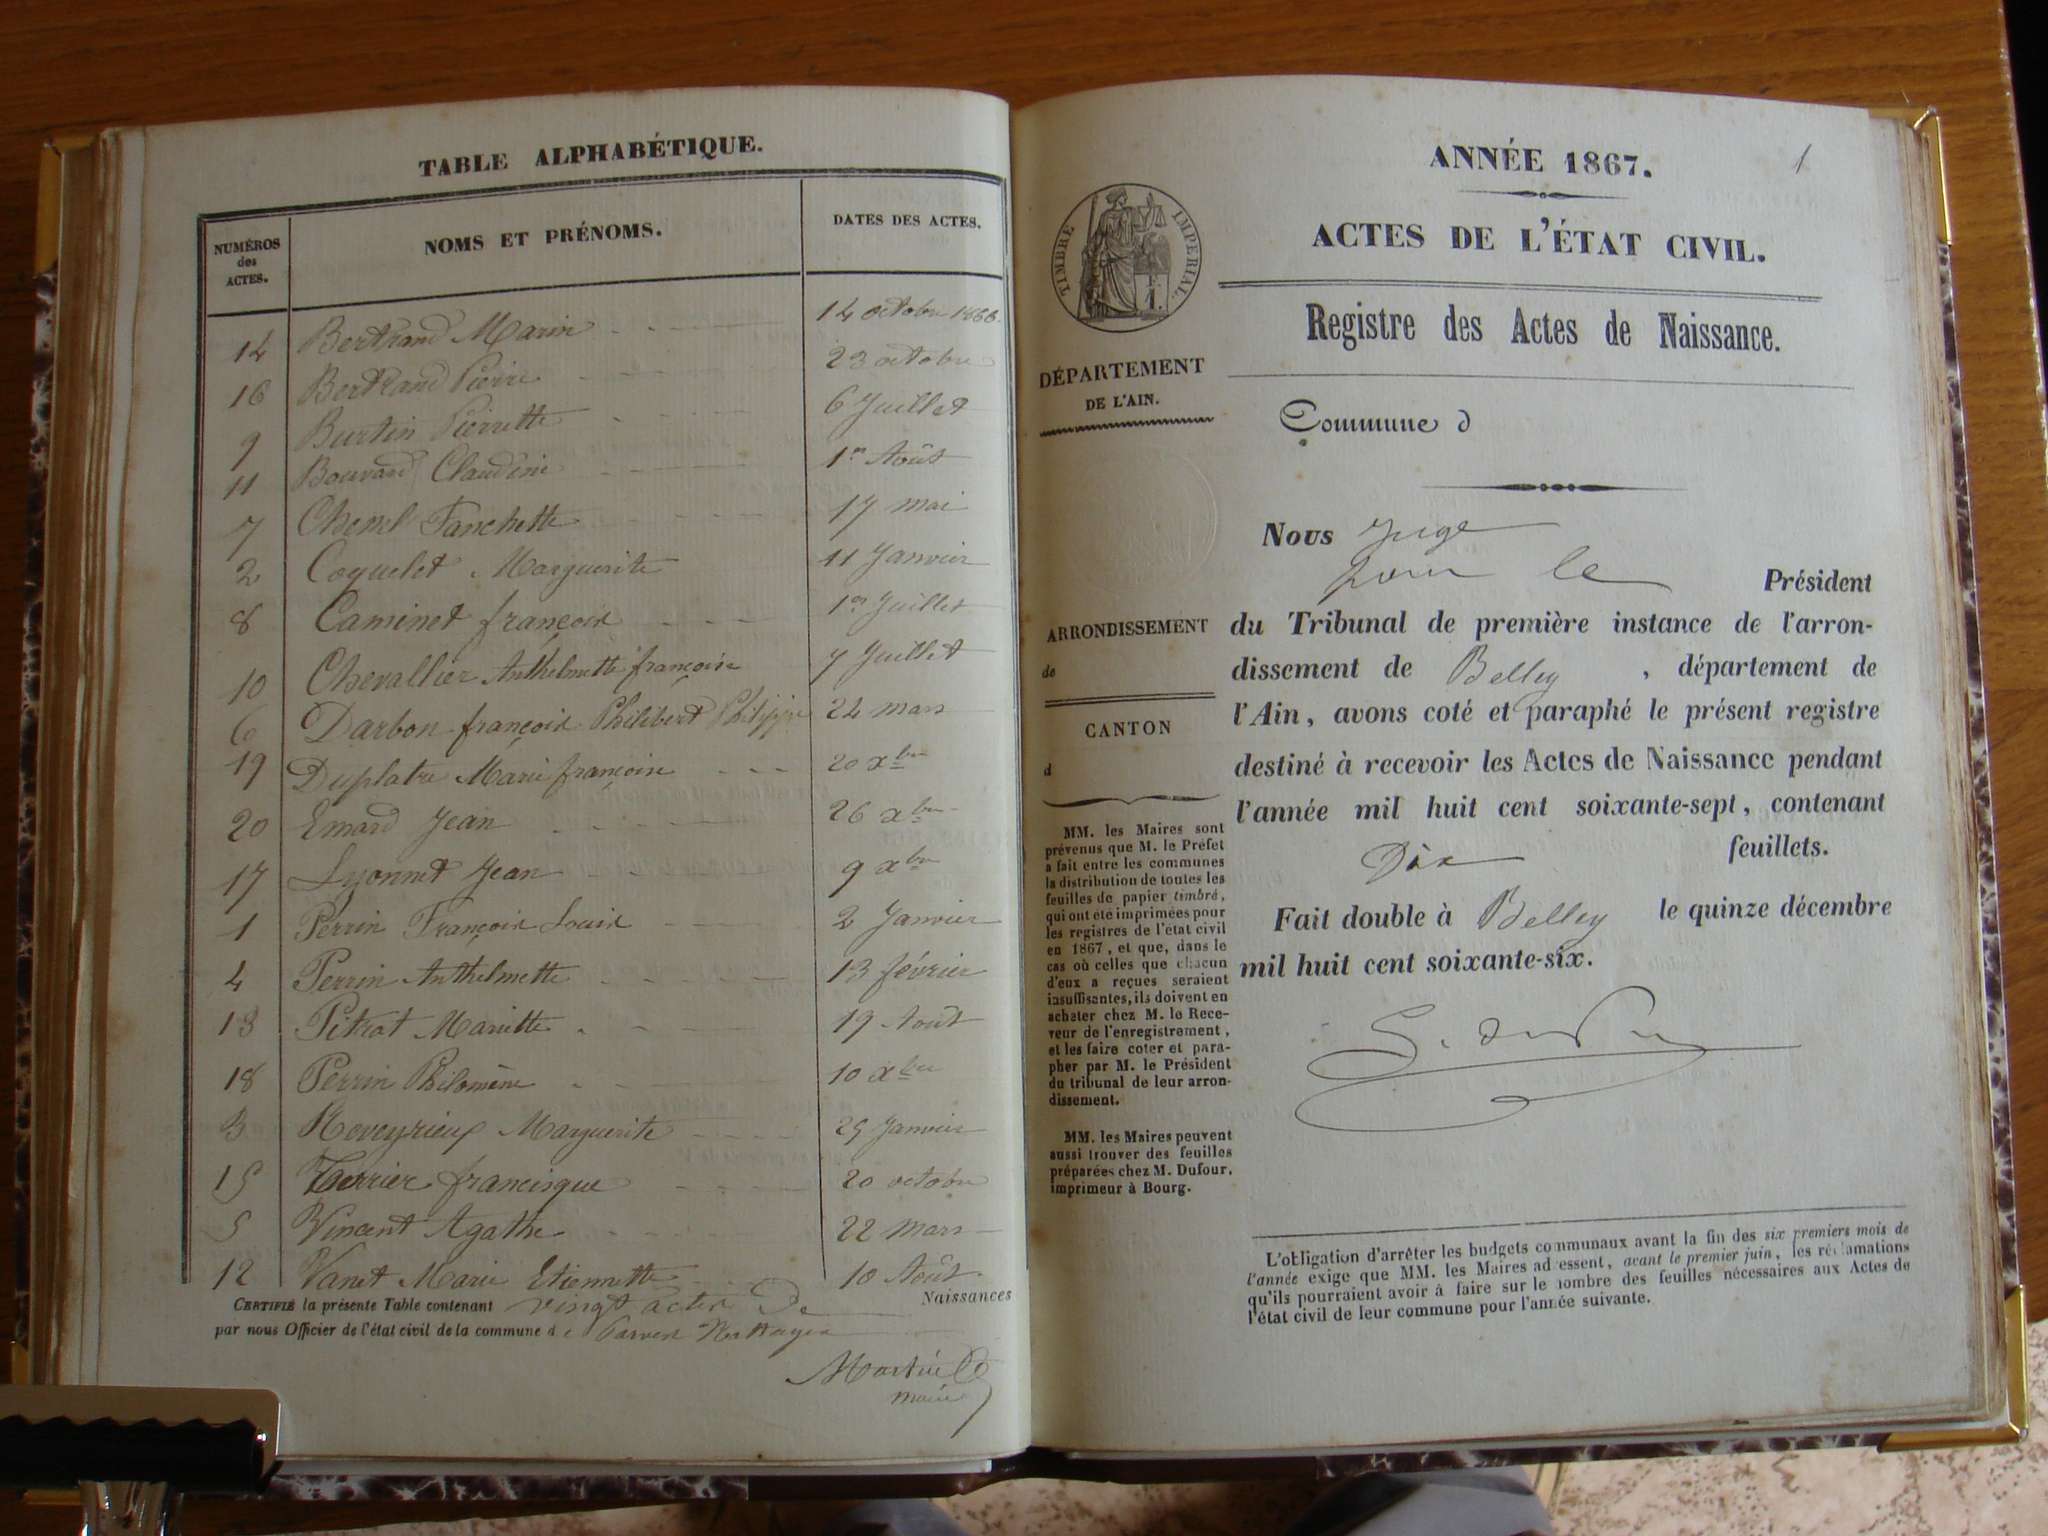 TABLE ALPHABÉTIQUE.
NUMÉROS des ACTES.
NOMS ET PRÉNOMS.
DATES DES ACTES.
14 Bertrand Marin 14 octobre 1866.
16 Bertrand Pierre 23 octobre
9 Burtin Pierrette 6 Juillet
11 Bouvard Claudine 1er Août
7 Fanchette 17 mai
2 Coquelet Marguerite 11 Janvier
8 Caminet françois 1er Juillet
10 Chevallier Anthelmette françoise 7 Juillet
6 Darbon françois Philibert Philippe 24 mars
19 Duplatre Marie françoise 20 xbre
20 Emard Jean 26 xbre
17 Lyonnet Jean 9 xbre
1 Perrin François Louis 2 Janvier
4 Perrin Anthelmette 13 février
13 Pitrat Mariette 19 Août
18 Perrin Philomène 10 xbre
3 Reveyrieux Marguerite 25 Janvier
15 Terrier francisque 20 octobre
5 Vincent Agathe 22 mars
12 Vanet Marie Etiennette 10 Août.
CERTIFIÉ la présente Table contenant vingt actes De Naissances
par nous Officier de l'état civil de la commune d e Parves
maire
ANNÉE 1867.
1
ACTES DE L'ÉTAT CIVIL.
TIMBRE IMPÉRIAL.
1.
Registre des Actes de Naissance.
DÉPARTEMENT
DE L'AIN.
Commune d
Nous Juge
pour le Président
ARRONDISSEMENT
de
CANTON
d
du Tribunal de première instance de l'arron-
dissement de Belley, département de
l'Ain, avons coté et paraphé le présent registre
destiné à recevoir les Actes de Naissance pendant
l'année mil huit cent soixante-sept, contenant
Dix feuillets.
Fait double à Belley le quinze décembre
mil huit cent soixante-six.
MM. les Maires sont
prévenus que M. le Préfet
a fait entre les communes
la distribution de toutes les
feuilles de papier timbré,
qui ont été imprimées pour
les registres de l'état civil
en 1867, et que, dans le
cas où celles que chacun
d'eux a reçues seraient
insuffisantes, ils doivent en
acheter chez M. le Rece-
veur de l'enregistrement,
et les faire coter et para-
pher par M. le Président
du tribunal de leur arron-
dissement.
MM. les Maires peuvent
aussi trouver des feuilles
préparées chez M. Dufour,
imprimeur à Bourg.
L'obligation d'arrêter les budgets communaux avant la fin des six premiers mois de
l'année exige que MM. les Maires adressent, avant le premier juin, les réclamations
qu'ils pourraient avoir à faire sur le nombre des feuilles nécessaires aux Actes de
l'état civil de leur commune pour l'année suivante.